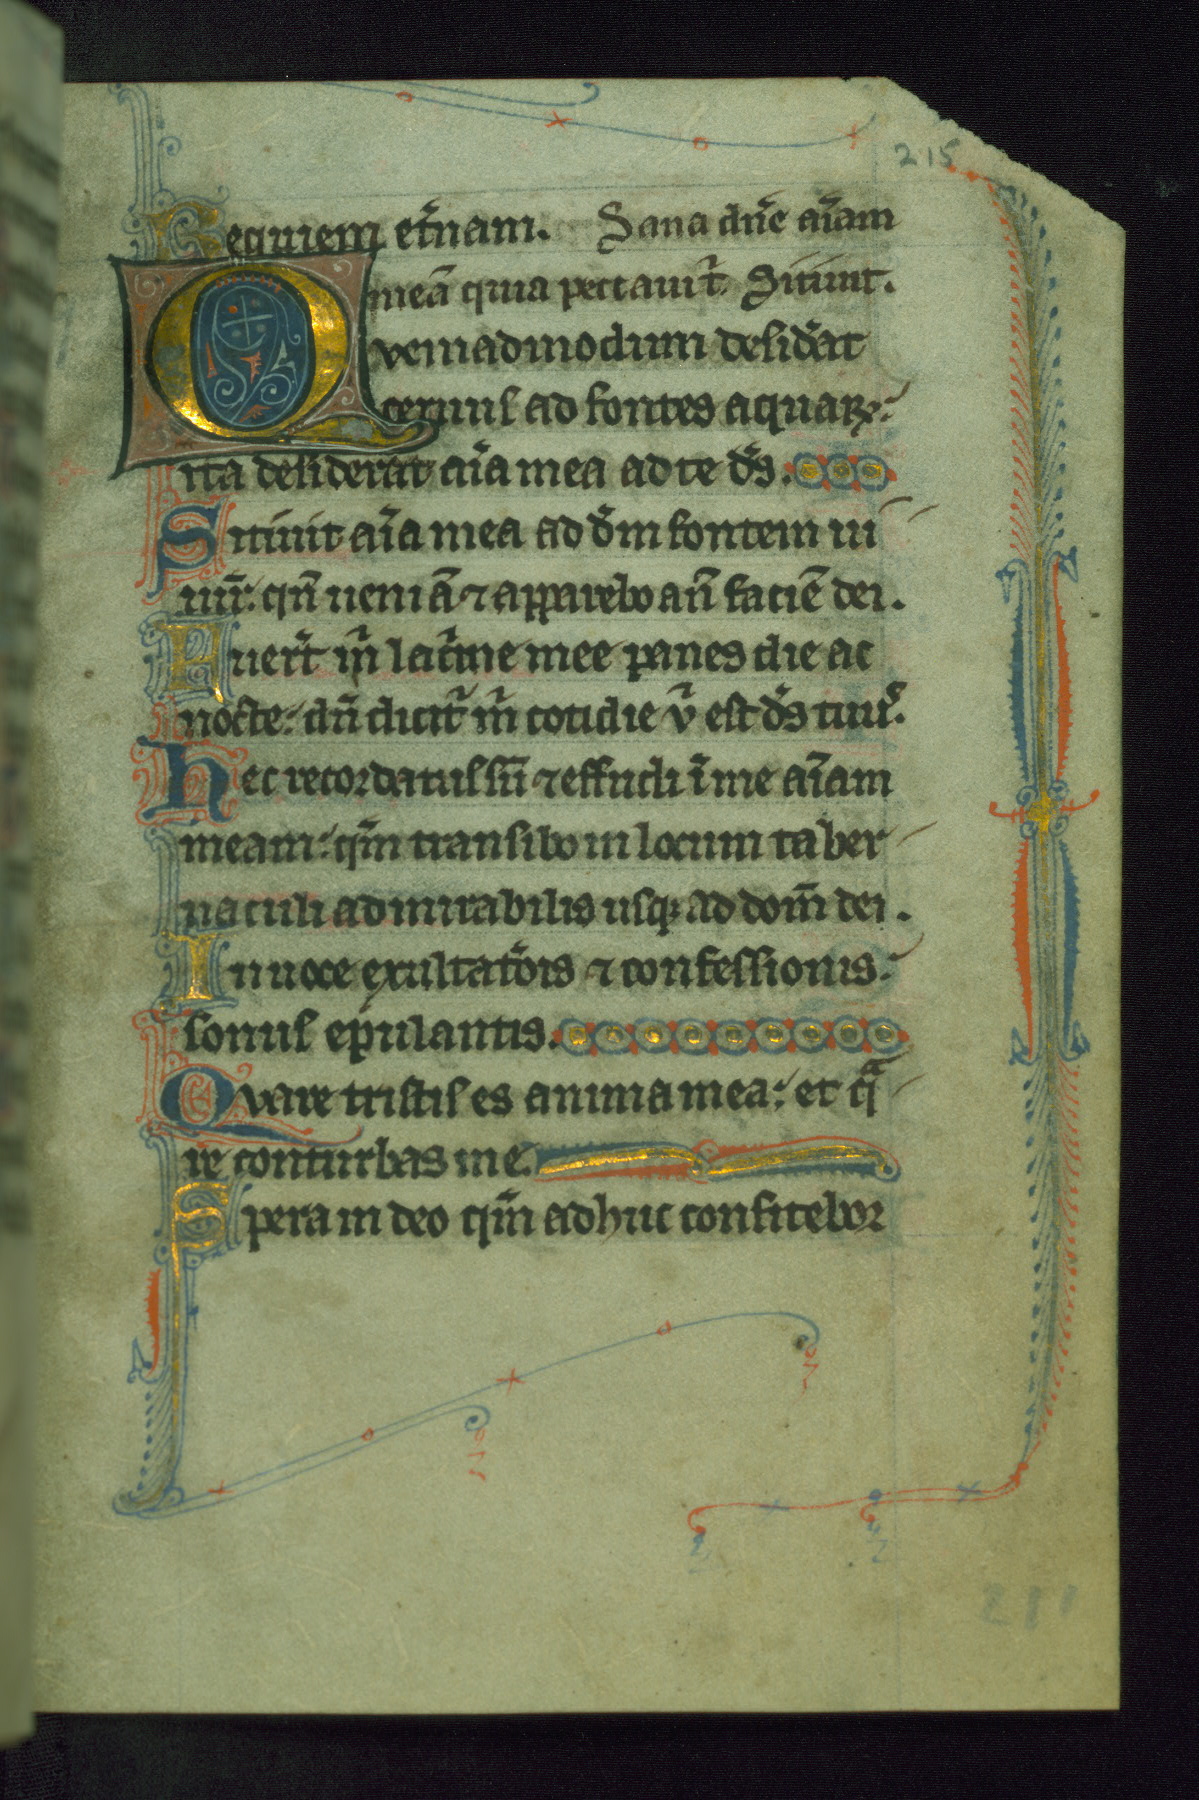 215
Requiem et̉nam. Sana dn̄e aīam
meā quia peccaui t̄. Sitiuit.
Quemadmodum desid̉at
ceruus ad fontes aquaꝝ:
ita desiderat aīa mea ad te ds̄.
Sitiuit aīa mea ad dm̄ fontem ui
uū: qn̄ ueniā ⁊ apparebo an̄ faciē dei.
Fuer̉t m̄ lac̉me mee panes die ac
nocte: dn̄ dicit̉ m̄ cotidie v̄ est ds̄ tuus.
Hec recordatus sū ⁊ effudi ī me aīam
meam: qm̄ transibo in locum taber
naculi admirabilis usqꝫ ad domū dei.
In uoce exultat̉ois ⁊ confessionis:
sonus epulantis.
Quare tristis es anima mea: et qͣ
re conturbas me.
Spera in deo qm̄ adhuc confitebor
211